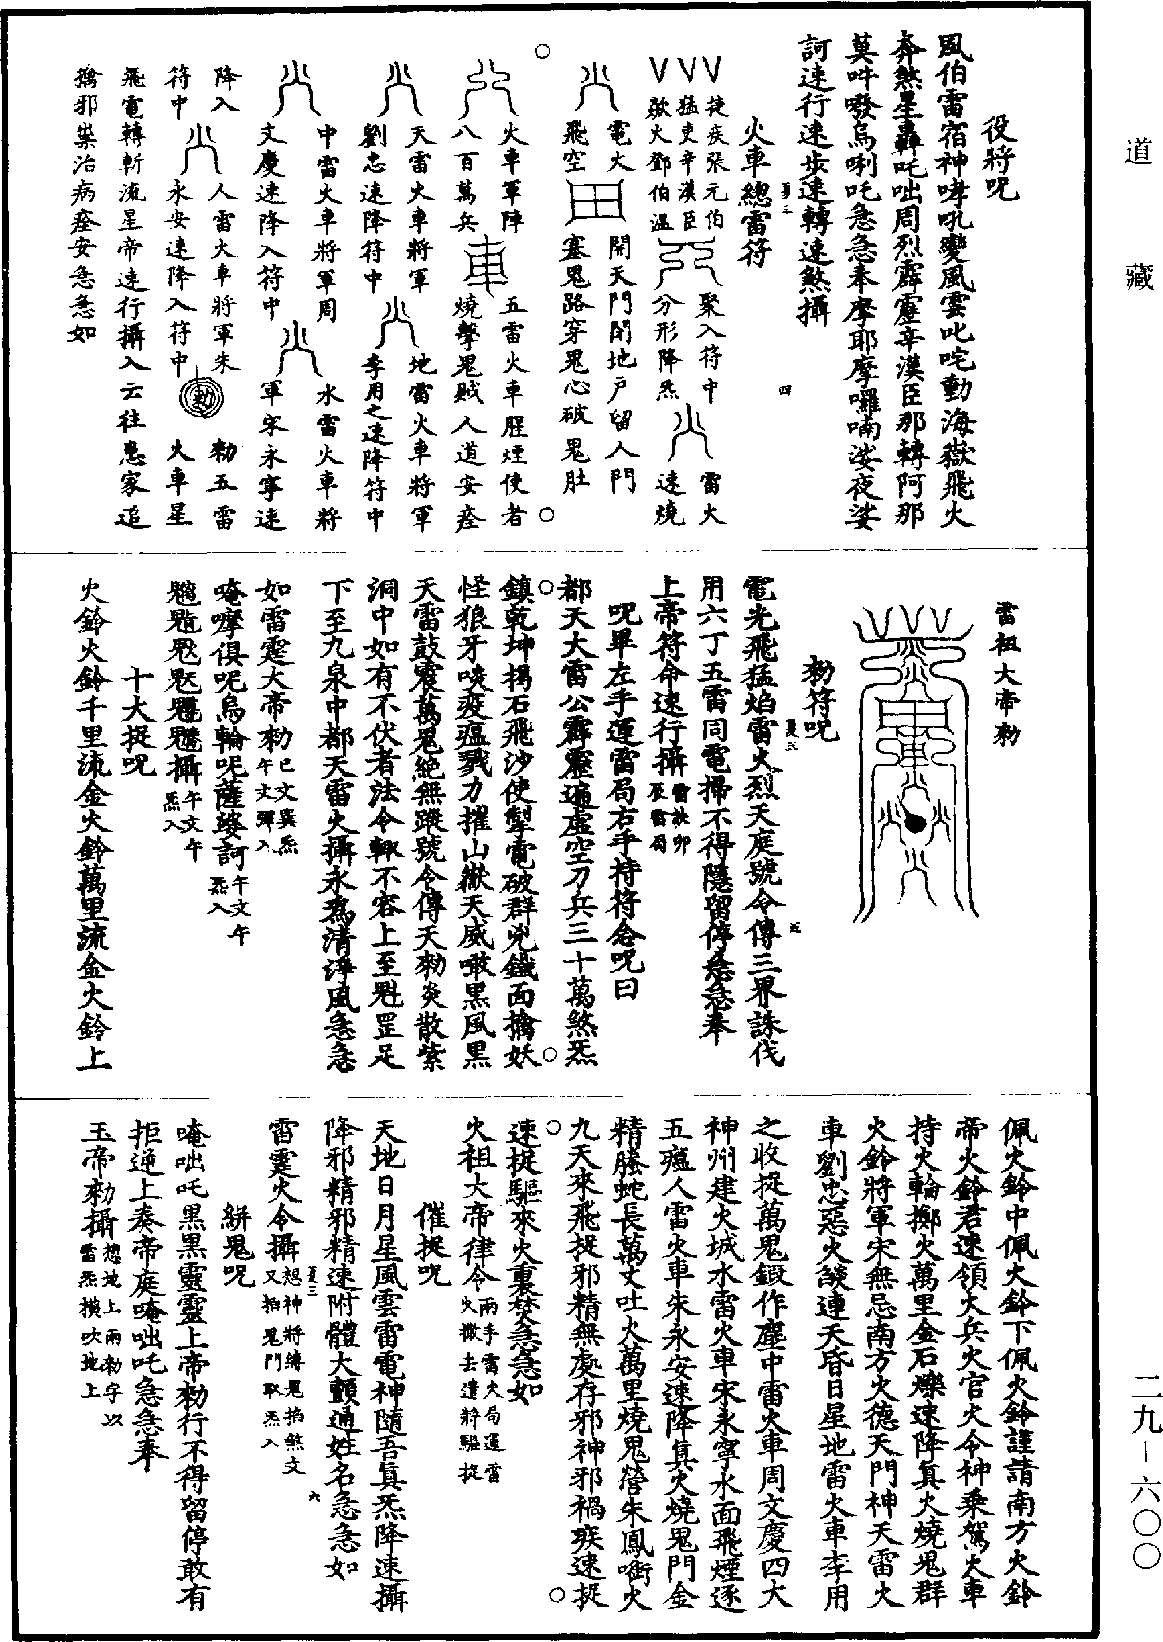 道藏
役將呪
風伯雷宿神哮吼變風雲叱咤動海嶽飛火
奔煞星轟吒咄周烈霹靂辛漢臣那轉阿那
莫吽㗶烏唎吒急急奉摩耶摩囉喃娑夜娑
訶速行速步速轉速煞攝
四
火車總雷符
捷疾張元伯
猛吏辛漢臣
歘火鄧伯溫
聚入符中
分形降炁
雷火
速燒
電火
飛空
開天門閉地戶留人門
塞鬼路穿鬼心破鬼肚
火車軍陣
八百萬兵
五雷火車腥煙使者
燒擊鬼賊人道安痊
天雷火車將軍
劉忠速降符中
地雷火車將軍
李用之速降符中
中雷火車將軍周
文慶速降入符中
水雷火車將
軍宋永寧速
降入
符中
人雷火車將軍朱
永安速降入符中
勑
勑五雷
火車星
飛電轉斬流星帝速行攝入云往患家追
擒邪祟治病痊安急急如
雷祖大帝勑
勑符呪
電光飛猛焰雷火烈天庭號令傳三界誅伐
用六丁五雷同電掃不得隱留停急急奉
上帝符命速行攝
五
呪畢左手運雷局右手持符念呪曰
都天大雷公霹靂遍虛空刀兵三十萬煞炁
鎮乾坤揚石飛沙使掣電破群兇鐵面擒妖
怪狼牙啖疫瘟戮力摧山嶽天威噉黑風黑
天雷鼓震萬鬼絕無蹤號令傳天勑炎散紫
洞中如有不伏者法令輙不容上至魁罡足
下至九泉中都天雷火攝永為清淨風急急
如雷霆大帝勑
巳文巽炁
午文彈入
唵嚤俱呢烏輪呢薩婆訶
午文午
炁入
攝
午文午
炁入
十大捉呪
火鈴火鈴千里流金火鈴萬里流金火鈴上
佩火鈴中佩大鈴下佩火鈴謹請南方火鈴
帝火鈴君速領大兵火官火令神乘駕火車
持火輪擲火萬里金石爍速降真火燒鬼群
火鈴將軍宋無忌南方火德天門神天雷火
車劉忠惡火燄連天昏日星地雷火車李用
之收捉萬鬼鍛作塵中雷火車周文慶四大
神州建火城水雷火車宋永寧水面飛煙逐
五瘟人雷火車朱永安速降真火燒鬼門金
精螣蛇長萬丈吐火萬里燒鬼營朱鳳啣火
九天來飛捉邪精無處存邪神邪禍疾速捉
速捉驅來火裏焚急急如
火祖大帝律令
兩手雷火局運雷
火撒去遣將驅捉
催捉呪
天地日月星風雲雷電神隨吾真炁降速攝
降邪精邪精速附體大顫通姓名急急如
雷霆火令攝
想神將縛鬼掐煞文
又拍鬼門取炁入
六
絣鬼呪
唵咄吒黑黑靈靈上帝勑行不得留停敢有
拒逆上奏帝庭唵咄吒急急奉
玉帝勑攝
想地上兩勑字以
雷炁橫吹地上
二九—六〇〇